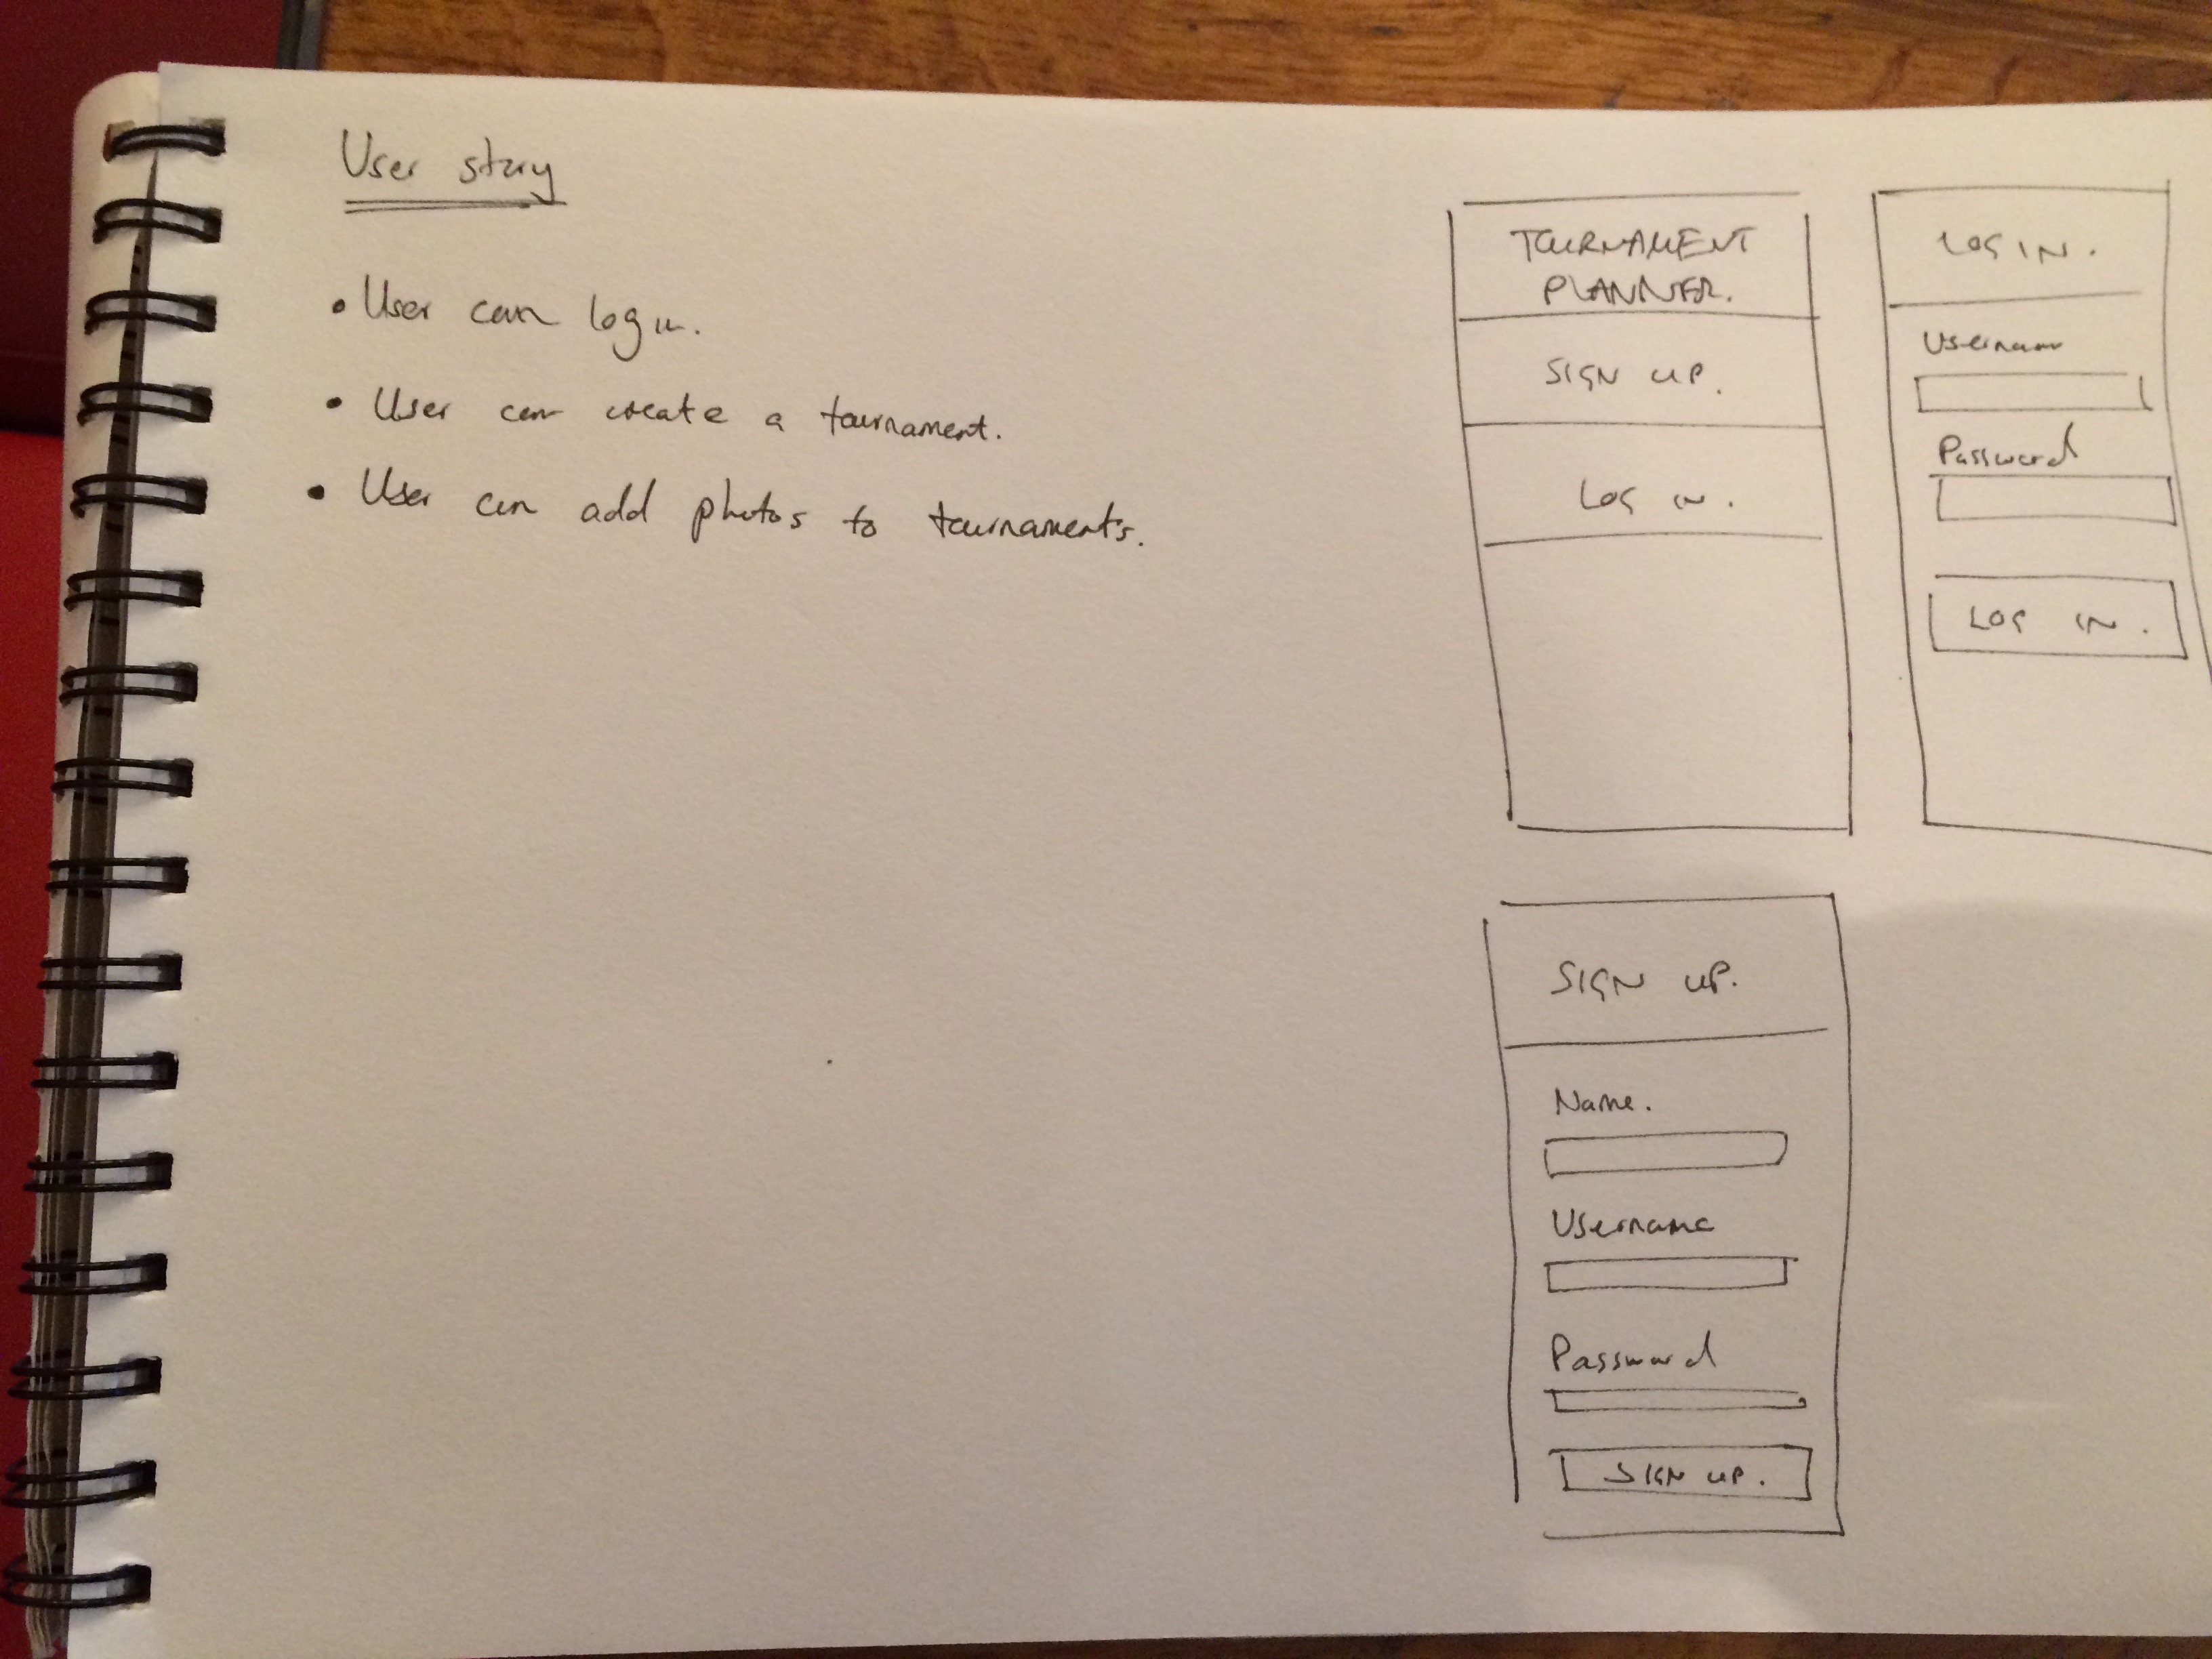 User story
• User can log in.
• User can create a tournament.
• User can add photos to tournaments.
TOURNAMENT
PLANNER.
SIGN UP.
LOG IN.
LOG IN.
Username
Password
LOG IN.
SIGN UP.
Name.
Username
Password
SIGN UP.